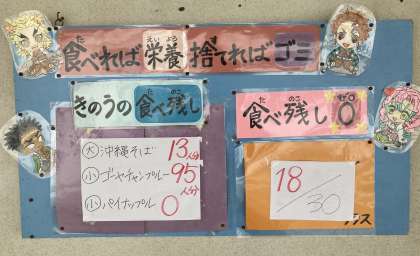 食べれば栄養捨てればゴミ
た えいよう す
きのうの食べ残し
た のこ
食べ残し0
た のこ ゼロ
大 沖縄そば 13人分
小 ゴーヤチャンプルー 95人分
小 パイナップル 0
18/30
クラス